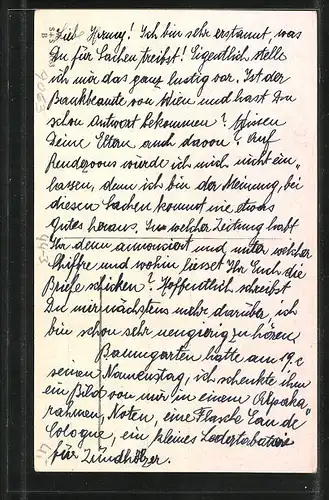 Lieb Hermy! Ich bin sehr erstaunt, was
Du für Sachen treibst! Eigentlich stelle
ich mir das ganz lustig vor. Ist der
Bankbeamte von Wien und hast Du
schon Antwort bekommen? Wissen
Deine Eltern auch davon? Auf
Rendezvous würde ich mich nicht ein„
lassen, denn ich bin der Meinung, bei
diesen Sachen kommt nie etwas
Gutes heraus. In welcher Zeitung habt
Ihr denn annonciert und unter welcher
Chiffre und wohin liesset Ihr Euch die
Briefe schicken? Hoffentlich schreibst
Du mir nächstens mehr darüber, ich
bin schon sehr neugierig zu hören.
Baumgarten hatte am 19.
seinen Namenstag, ich schenkte ihm
ein Bild von mir in einem Alpaka„
rahmen, Noten, eine Flasche Eau de
Cologne, ein kleines
für Zündhölzer.